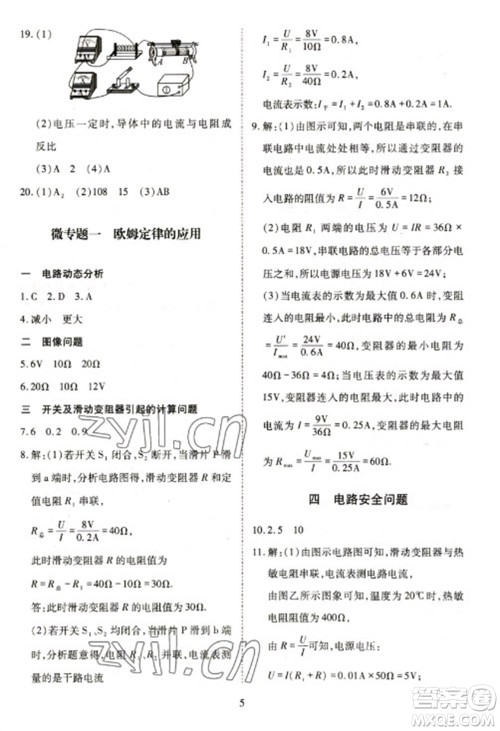 19. (1)
A B
(2)电压一定时,导体中的电流与电阻成
反比
(3)A 2 (4)A
20. (1)A₂ (2)108 15 (3)AB
微专题一 欧姆定律的应用
一 电路动态分析
1. C 2. D 3. A
4. 减小 更大
二 图像问题
5. 6V 10Ω 20Ω
6. 20Ω 10Ω 12V
三 开关及滑动变阻器引起的计算问题
7. 6 0.2 0.9
8. 解:(1)若开关S₁、S₂断开,滑动变阻器滑片
到a端时,分析电路得,滑动变阻器R与定
值电阻R₁串联,
R总 = U/I = 8V/0.2A = 40Ω
此时滑动变阻器R的电阻值为
R = R总 - R₁ = 40Ω - 10Ω = 30Ω
答:此时滑动变阻器R的电阻值为30Ω。
(2)若开关S₁、S₂均闭合,滑片移至b端
时,分析题意得,电阻R₁、R₂并联,电流表测
量的是干路电流
I₁ = U/R₁ = 8V/10Ω = 0.8A,
I₂ = U/R₂ = 8V/40Ω = 0.2A,
电流表示数:I干 = I₁ + I₂ = 0.8A + 0.2A = 1A
9. 解:(1)由图示可知,变阻器与电阻串联,在串
联电路中电流处处相等,所以通过变阻器的电流
也是0.5A,所以此时滑动变阻器接
入电路的阻值为R = U/I = 6V/0.5A = 12Ω。
(2)电阻R₁两端的电压为U = IR = 0.5A ×
36Ω = 18V,由于串联电路总电压等于各部分
电压之和,所以,电源电压为6V + 18V = 24V。
(3)当电流表的示数为最大值0.6A时,变阻
器连入的电阻最小,此时电路中的总电阻R总
= U′/Imax = 24V/0.6A = 40Ω,变阻器的最小电阻为
40Ω - 36Ω = 4Ω;当电压表的示数为最大值
15V时,变阻器连入的电阻最大,电路的电流
I = 9V/36Ω = 0.25A,变阻器的最大电阻为
Rmax = Umax/I = 15V/0.25A = 60Ω。
四 电路安全问题
10. 2.5 10
11. 解:(1)由图示电路图可知,滑动变阻器与热
敏电阻串联,电流表测电路电流,
由图乙所示图象可知,温度为20℃时,热敏
电阻阻值R = 400Ω,
由于R = U/I,电源电压:
U = I(R₁ + R) = 0.02A × (50Ω + 400Ω)
5
zyjl.cn
zyjl.cn